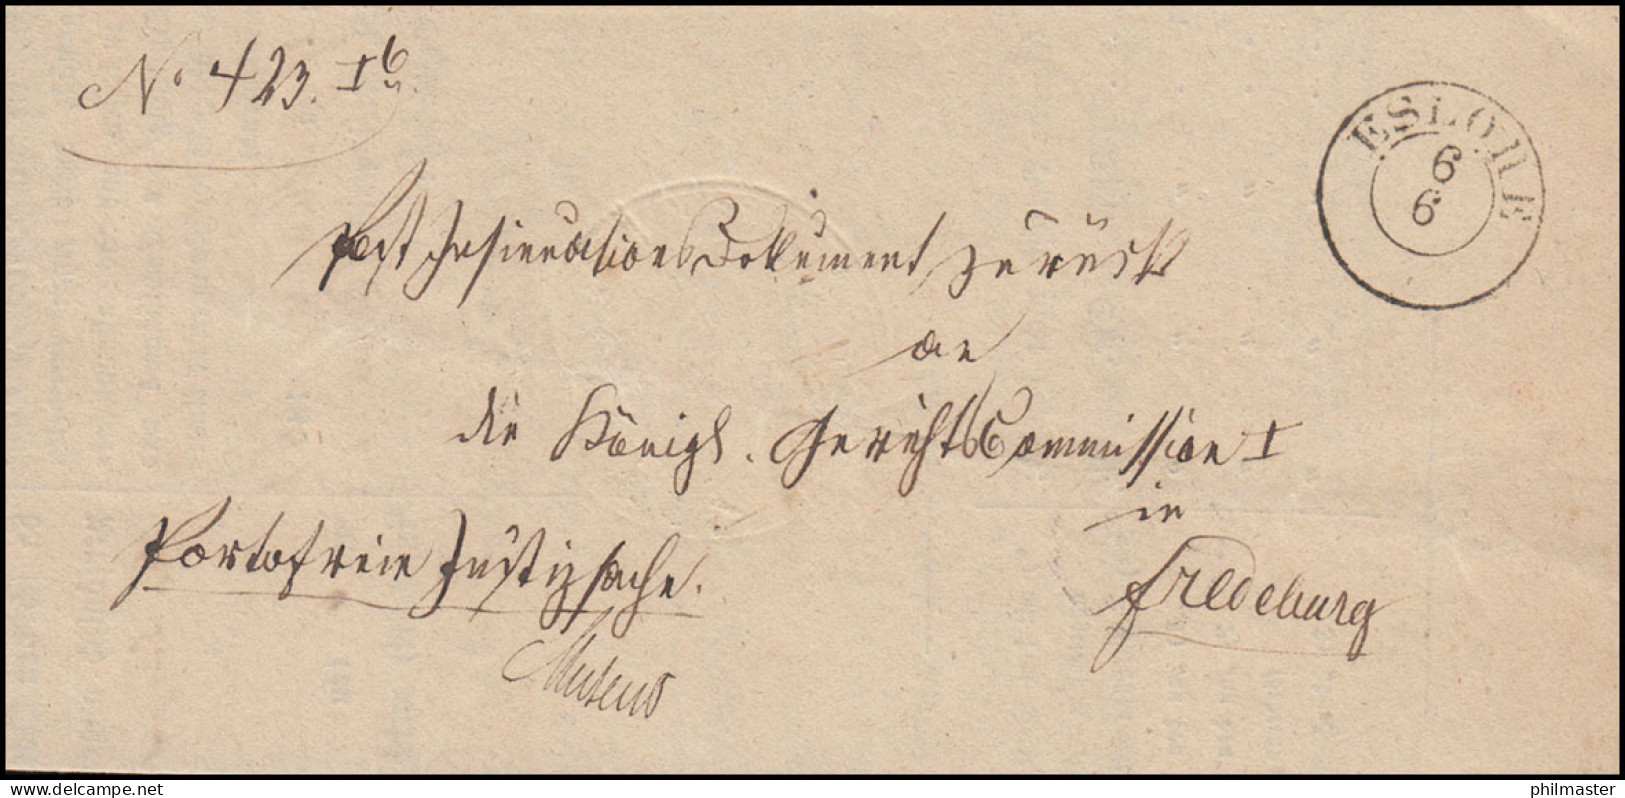 No. 423. I b
ESLOHE
6
6
Post Insinuations Dokument zurück
an
die Königl. Gerichts Commission I
in
Fredeburg
Portofreie Justizsache.
delcampe.net
philmaster